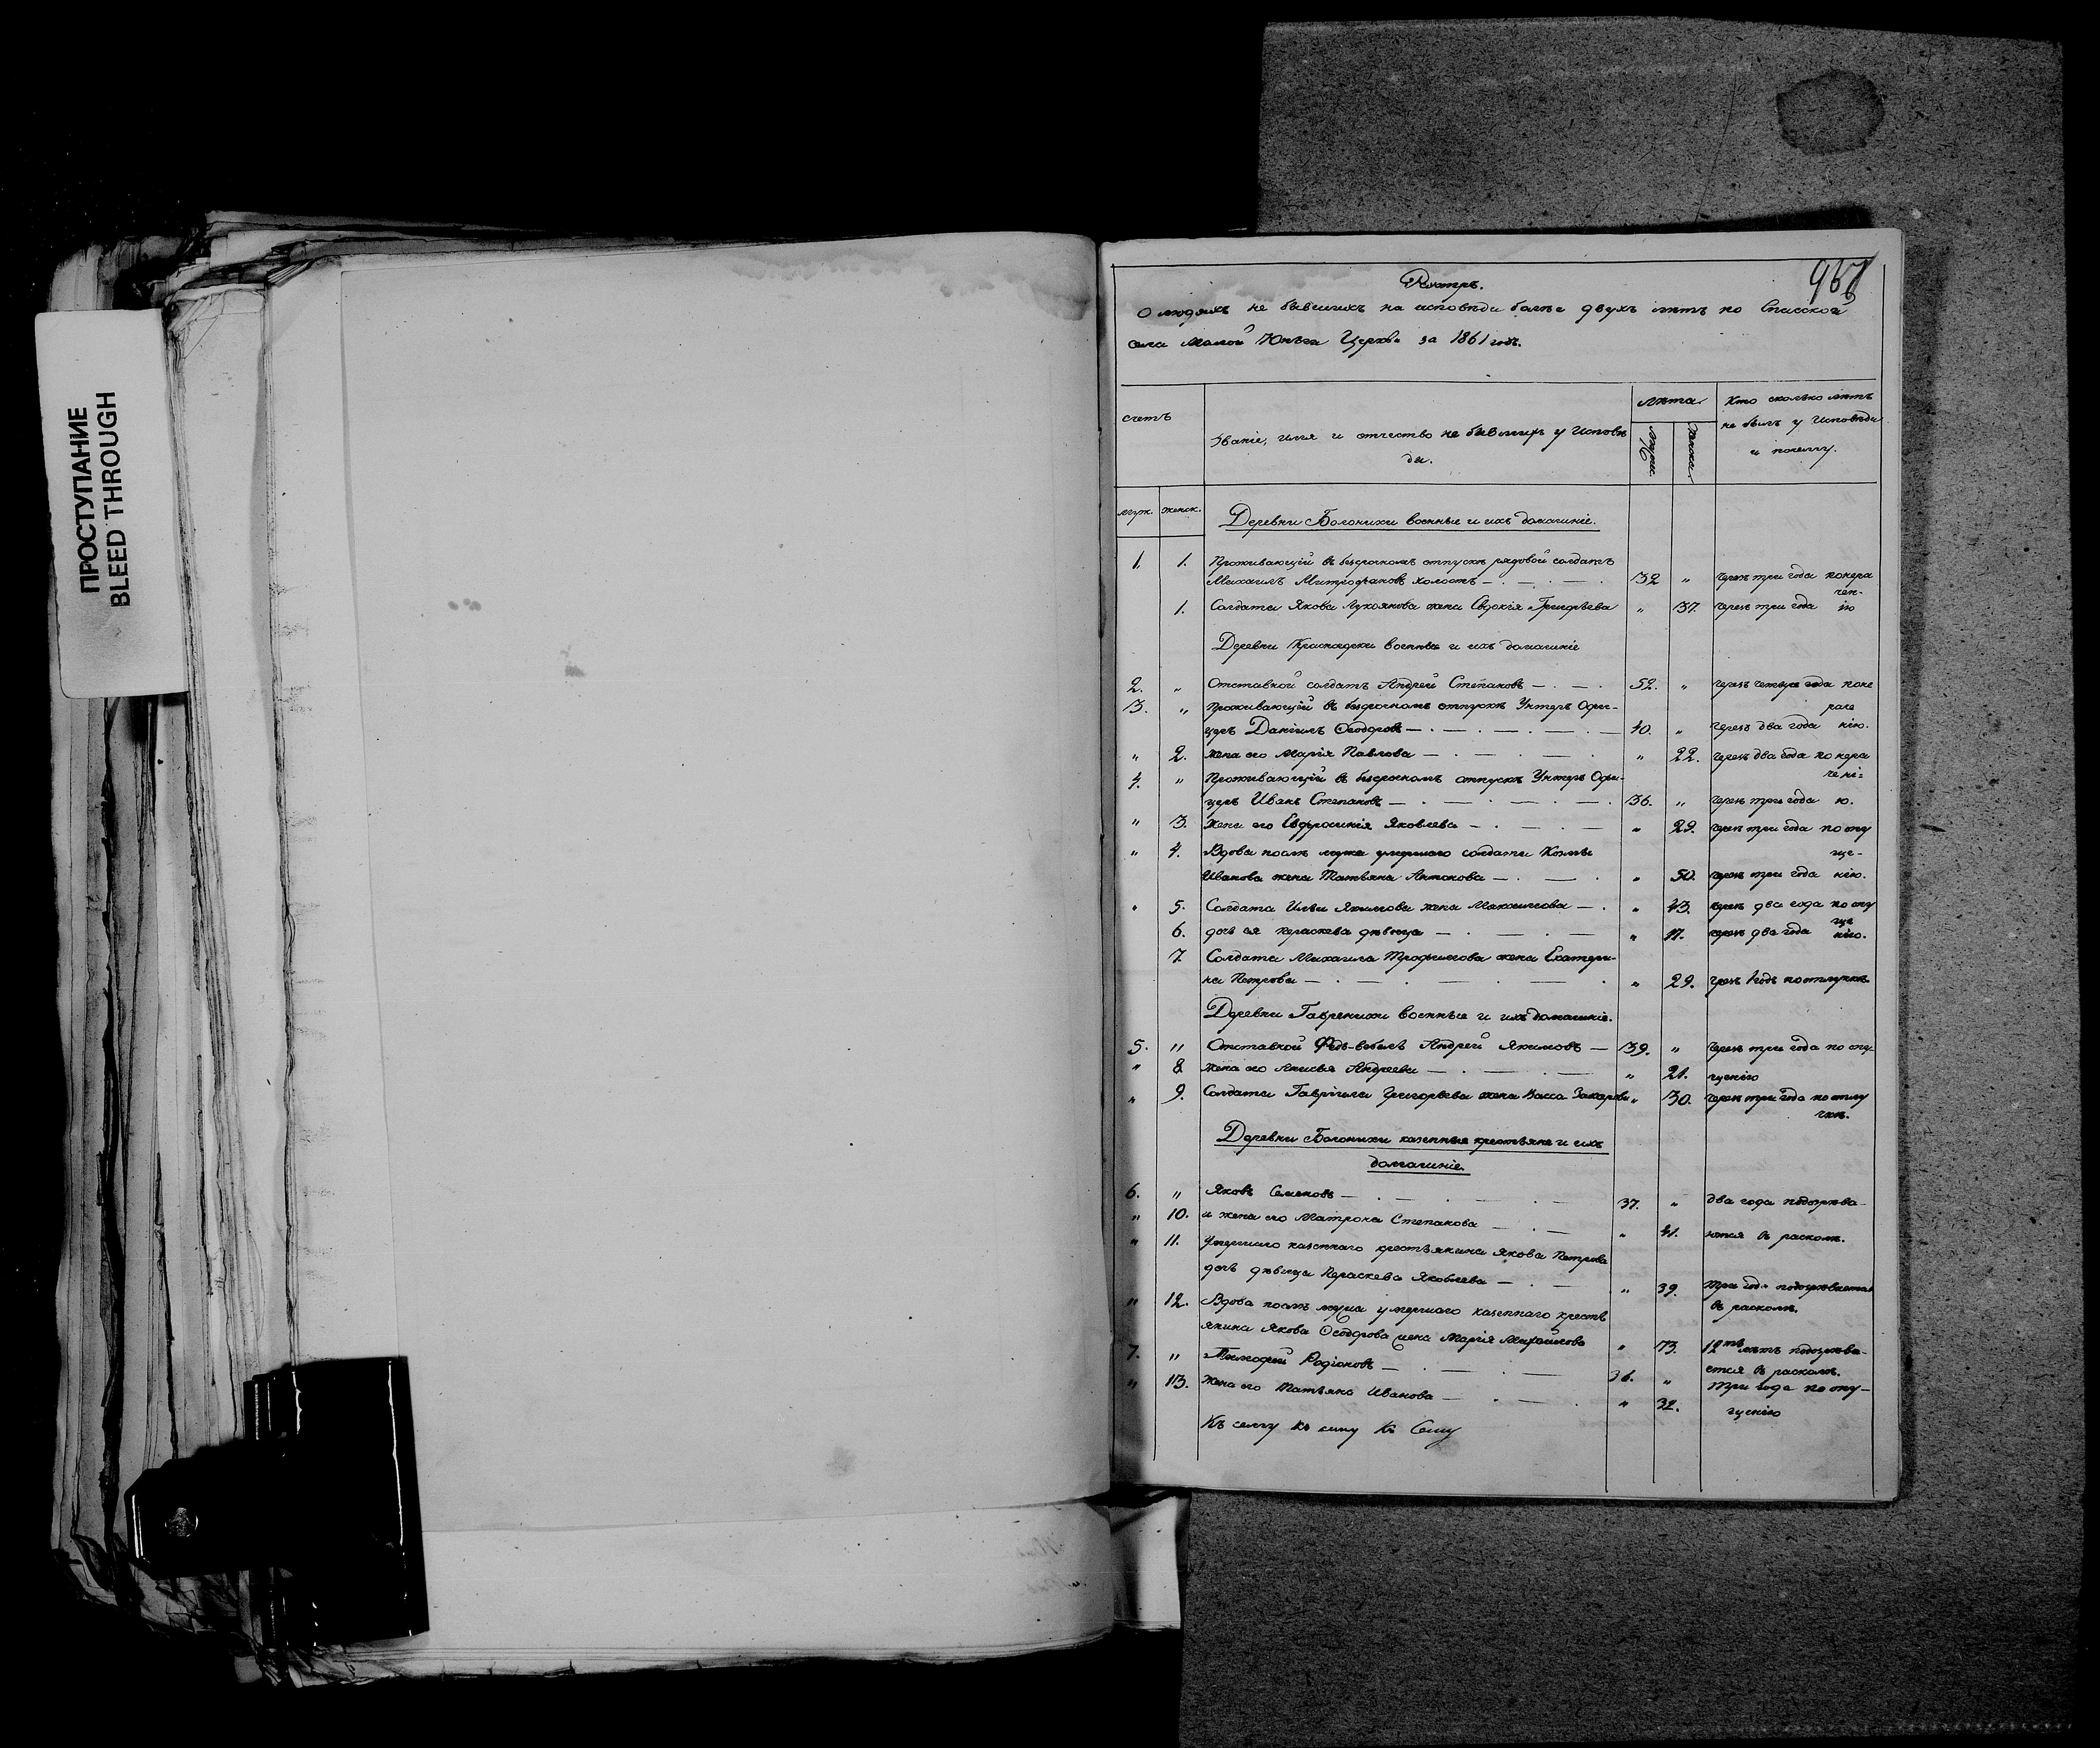 ПРОСТУПАНИЕ
BLEED THROUGH
Реэстръ.
О людяхъ не бывшихъ на исповѣди болѣе двухъ лѣтъ по Спасской
села Малой Юнъги Церкви за 1861 годъ.
счетъ
Званіе, имя и отчество не бывшихъ у Исповѣ
ди.
лѣта
мужс.
женск.
Кто сколько лѣтъ
не былъ у Исповѣди
и почему.
муж. женск.
Деревни Болонихи военные и ихъ домашніе.
1. 1. Проживающій въ безсрочномъ отпускѣ рядовой солдатъ
Михаилъ Митрофановъ холостъ — 32 „ чрезъ три года по нера
чен-
1. Солдата Якова Лукоянова жена Евдокія Григорьева „ 37. чрезъ три года ію
Деревни военные и ихъ домашніе
2. „ Отставной солдатъ Андрей Степановъ — 52. „ чрезъ четыре года по не
3. „ Проживающій въ безсрочномъ отпускѣ Унтеръ Офи-
раче
церъ Даніилъ Ѳеодоровъ — 40. „ чрезъ два года нію.
„ 2. жена его Марія Павлова — „ 22. чрезъ два года по нера
4. „ Проживающій въ безсрочномъ отпускѣ Унтеръ Офи-
чені-
церъ Иванъ Степановъ — 36. „ чрезъ три года ю.
„ 3. Жена его Евфросинія Яковлева — „ 29. чрезъ три года по опу
„ 4. Вдова послѣ мужа умершаго солдата Козмы
ще-
Иванова жена Татьяна Антонова — „ 50. чрезъ три года нію.
„ 5. Солдата Ильи Якимова жена Максимова — „ 43. чрезъ два года по опу
ще
6. дочь ея Параскева дѣвица — „ 17. чрезъ два года нію.
7. Солдата Михаила Трофимова жена Екатери-
на Петрова — „ 29. чрезъ 1 годъ по отлучкѣ.
Деревни Гавренихи военные и ихъ домашніе.
5. „ Отставной Фелъ-вебель Андрей Якимовъ — 39. „ Чрезъ три года по опу-
„ 8 жена его Анисья Андреева — „ 21. щенію
„ 9. Солдата Гавріила Григорьева жена Васса Захарова „ 30. чрезъ три года по отлу
чкѣ.
Деревни Болонихи казенные крестьяне и ихъ
домашніе.
6. „ Яковъ Семеновъ — 37. „ два года подозрѣва-
„ 10. и жена его Матрона Степанова — „ 41. ются въ расколѣ.
„ 11. умершаго казеннаго крестьянина Якова Петрова
дочь дѣвица Параскева Яковлева — „ 39. три года подозрѣвается
въ расколѣ.
„ 12. Вдова послѣ мужа умершаго казеннаго кресть
янина Якова Ѳеодорова жена Марія Михайлова „ 73. 12ть лѣтъ подозрѣва-
ется въ расколѣ.
7. „ Тимофей Родіоновъ — 36. „ три года по опу-
„ 13. Жена его Татьяна Иванова — „ 32. щенію
Къ сему къ сему Къ Сему